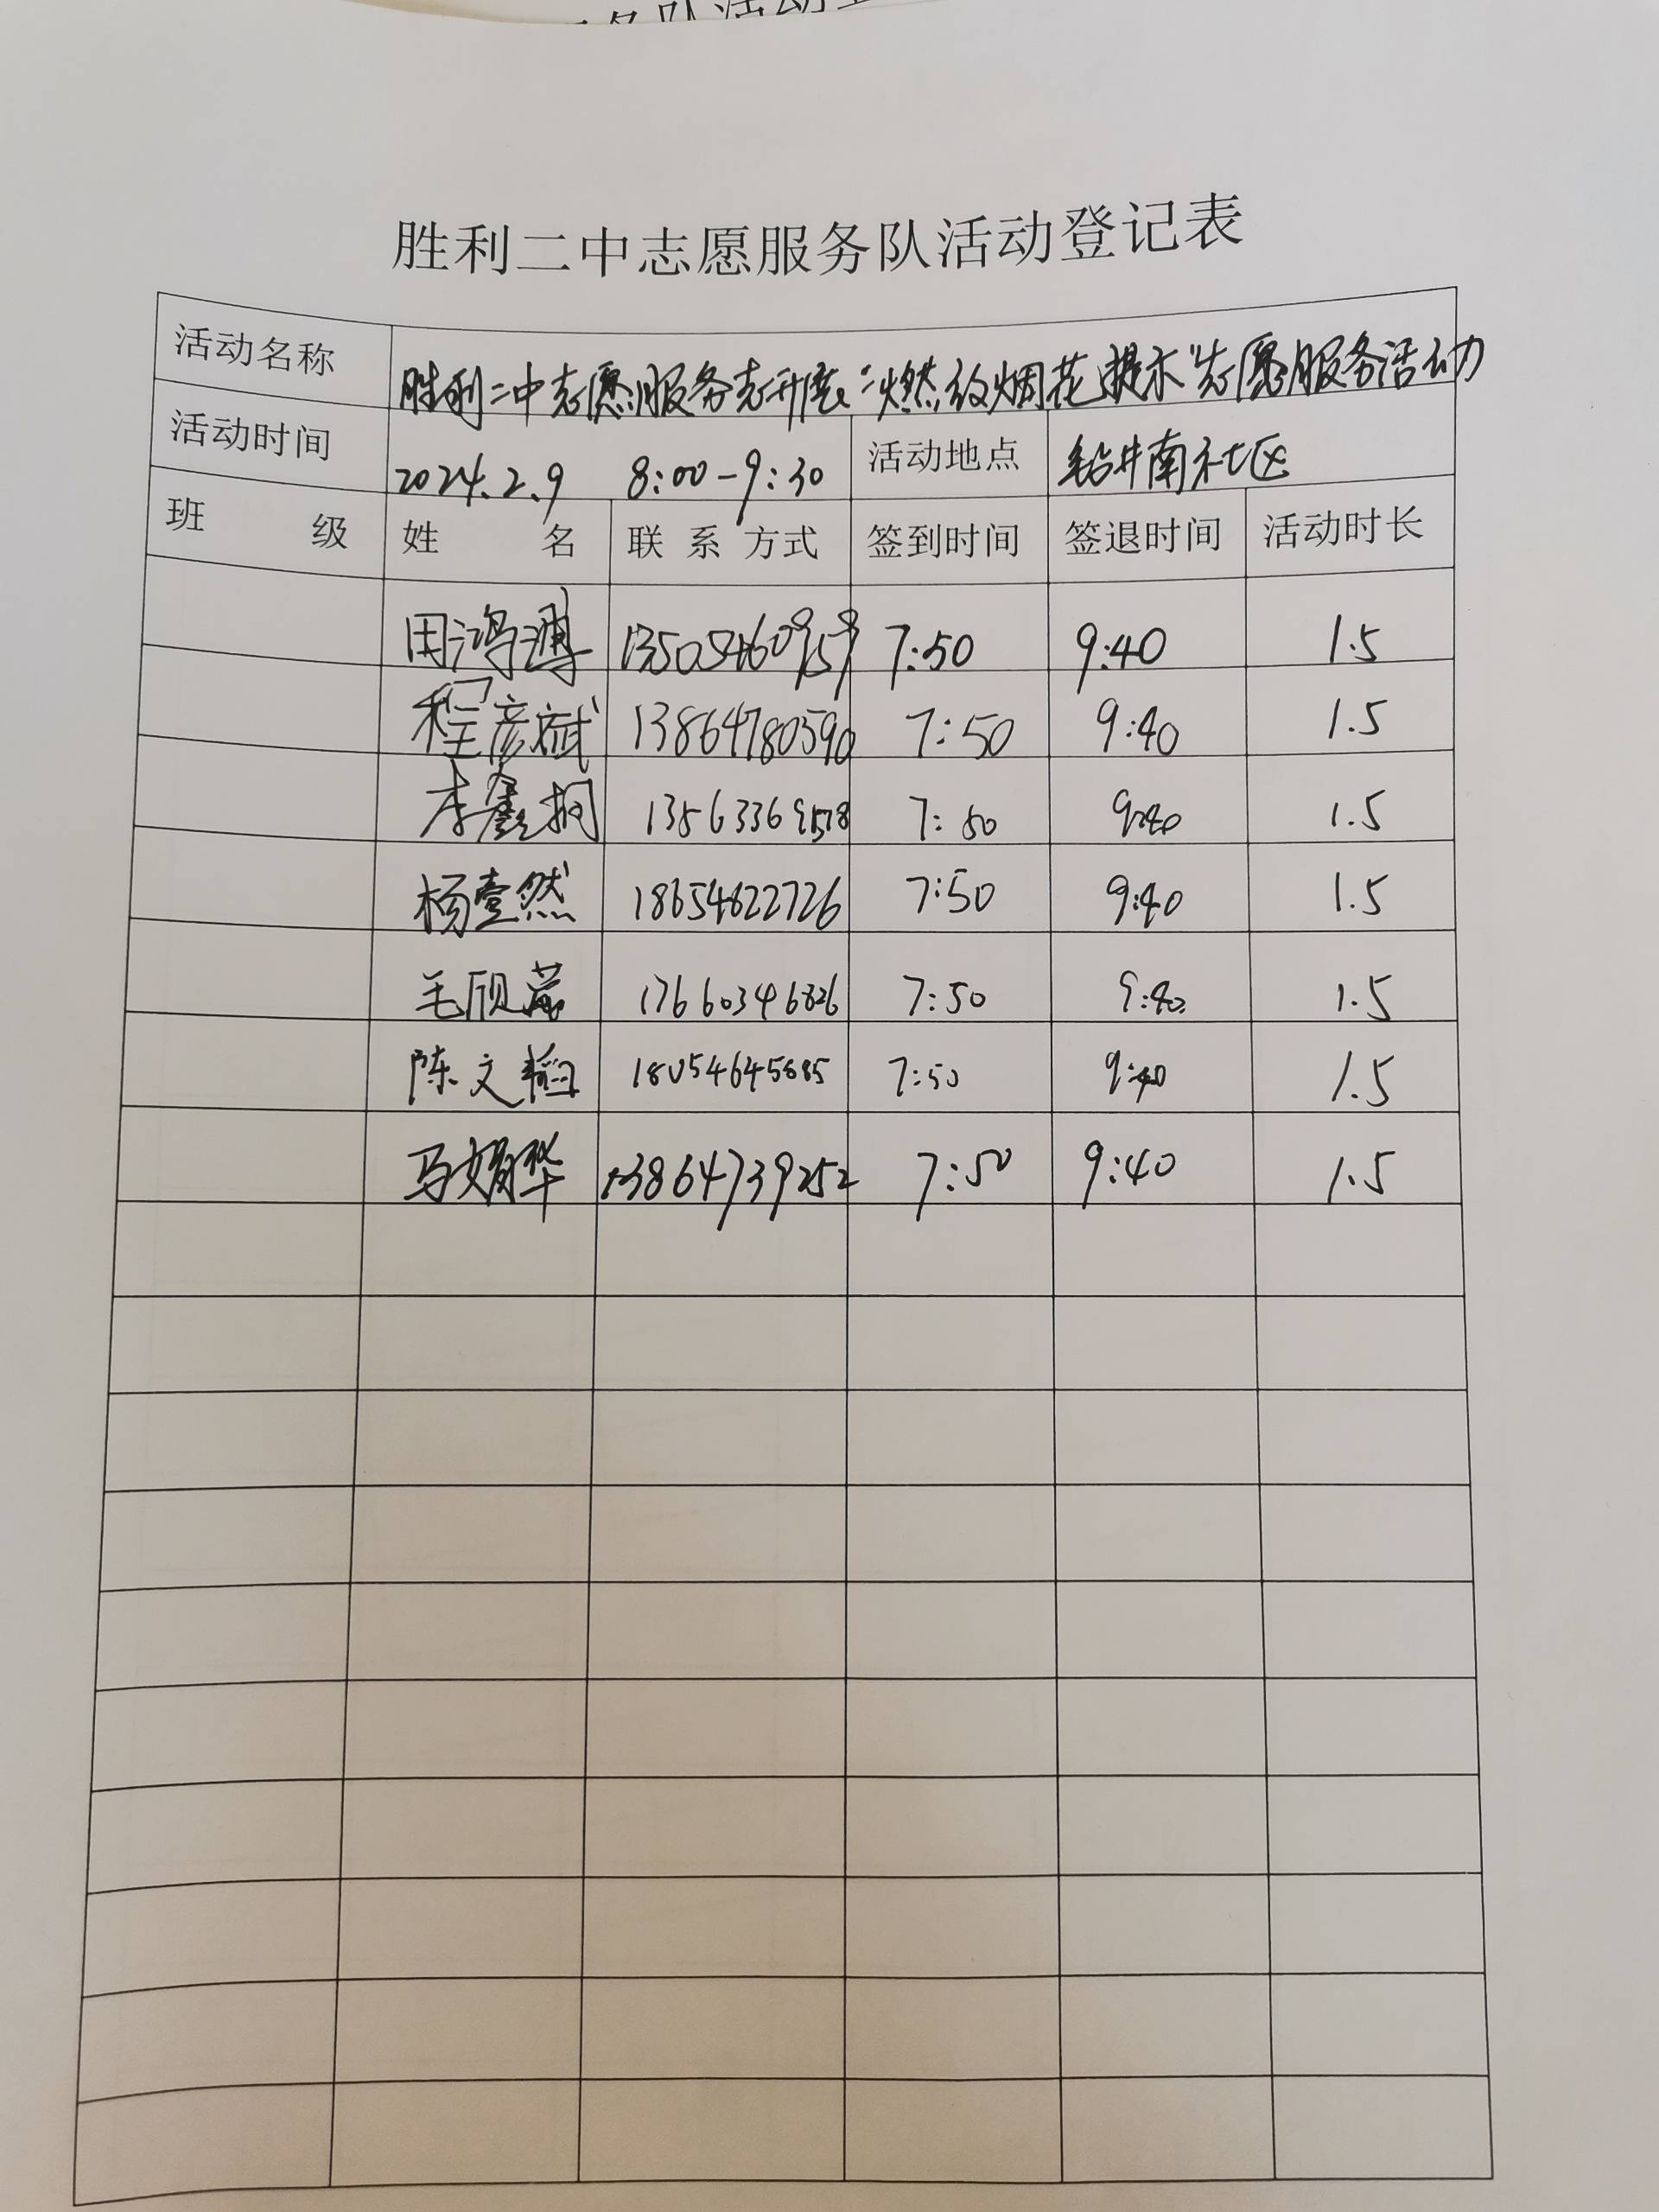 胜利二中志愿服务队活动登记表
活动名称 胜利二中志愿服务志开展“燃放烟花提示”志愿服务活动
活动时间 2024.2.9 8:00-9:30 活动地点 钻井南社区
班 级 姓 名 联 系 方式 签到时间 签退时间 活动时长
7:50 9:40 1.5
程彦斌 13864780590 7:50 9:40 1.5
李鑫 7:50 9:40 1.5
杨壹然 18654622726 7:50 9:40 1.5
毛 17660346826 7:50 9:40 1.5
陈文韬 18054645885 7:50 9:40 1.5
马 13864739252 7:50 9:40 1.5